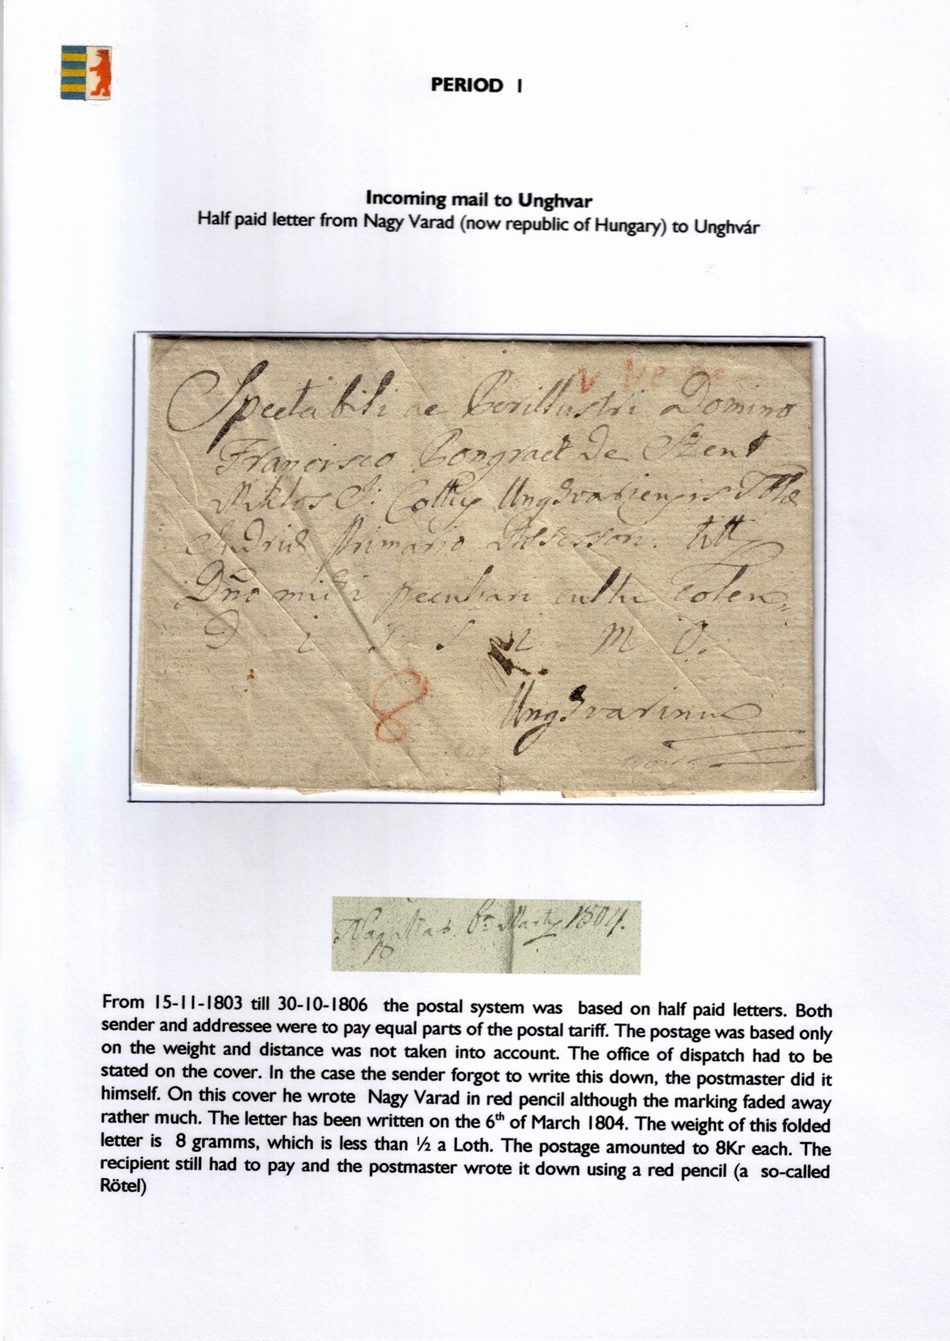 PERIOD 1
Incoming mail to Unghvar
Half paid letter from Nagy Varad (now republic of Hungary) to Unghvár
Spectabili ac Perillustri Domino
Francisco Pongracz De Szent
Miklos I. Cottus Unghvariensis Tblae
Judriae Primario Assessori. titt
Dño mihi peculiari cultu Colen
D i s s i m o.
8
Unghvarini
6a Marty 1804.
From 15-11-1803 till 30-10-1806 the postal system was based on half paid letters. Both
sender and addressee were to pay equal parts of the postal tariff. The postage was based only
on the weight and distance was not taken into account. The office of dispatch had to be
stated on the cover. In the case the sender forgot to write this down, the postmaster did it
himself. On this cover he wrote Nagy Varad in red pencil although the marking faded away
rather much. The letter has been written on the 6th of March 1804. The weight of this folded
letter is 8 gramms, which is less than ½ a Loth. The postage amounted to 8Kr each. The
recipient still had to pay and the postmaster wrote it down using a red pencil (a so-called
Rötel)